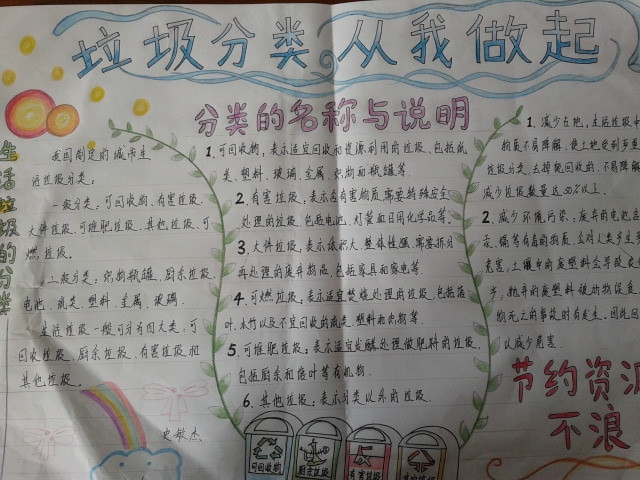 垃圾分类 从我做起
生活垃圾的分类
我国制定的城市生
活垃圾分类:
一般分类:可回收物、有害垃圾、
大件垃圾、可堆肥垃圾、其他垃圾、可
燃垃圾。
二级分类:织物、瓶罐、厨余垃圾、
电池、纸类、塑料、金属、玻璃.
生活垃圾一般可分为四大类:可
回收垃圾、厨余垃圾、有害垃圾和
其他垃圾.
史敏杰
分类的名称与说明
1. 可回收物:表示适宜回收和资源利用的垃圾,包括纸
类、塑料、玻璃、金属、织物和瓶罐等.
2. 有害垃圾:表示含有害物质,需要特殊安全
处理的垃圾,包括电池、灯管和日用化学品等.
3. 大件垃圾:表示体积大、整体性强,需要拆分
再处理的废弃物品,包括家具和家电等.
4. 可燃垃圾:表示适宜焚烧处理的垃圾,包括落
叶、木竹以及不宜回收的纸类、塑料和织物等.
5. 可堆肥垃圾:表示适宜发酵处理做肥料的垃圾,
包括厨余和落叶等有机物.
6. 其他垃圾:表示分类以外的垃圾.
可回收物
厨余垃圾
有害垃圾
其他垃圾
1. 减少占地,生活垃圾中
物质不易降解,使土地受到
分类,去掉能回收的、不易降解
减少垃圾数量达50%以上.
2. 减少环境污染:废弃的电池含
汞、镉等有毒的物质,会对人类产生
危害,土壤中的废塑料会导致
抛弃的废塑料被动物误
物死亡的事故时有发生.因此回
以减少危害.
节约资源
不浪